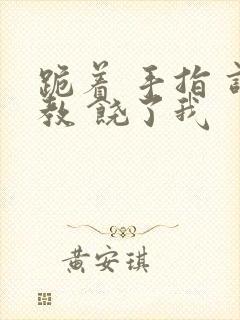 跪着 手指 
教 饶了我
黄安琪